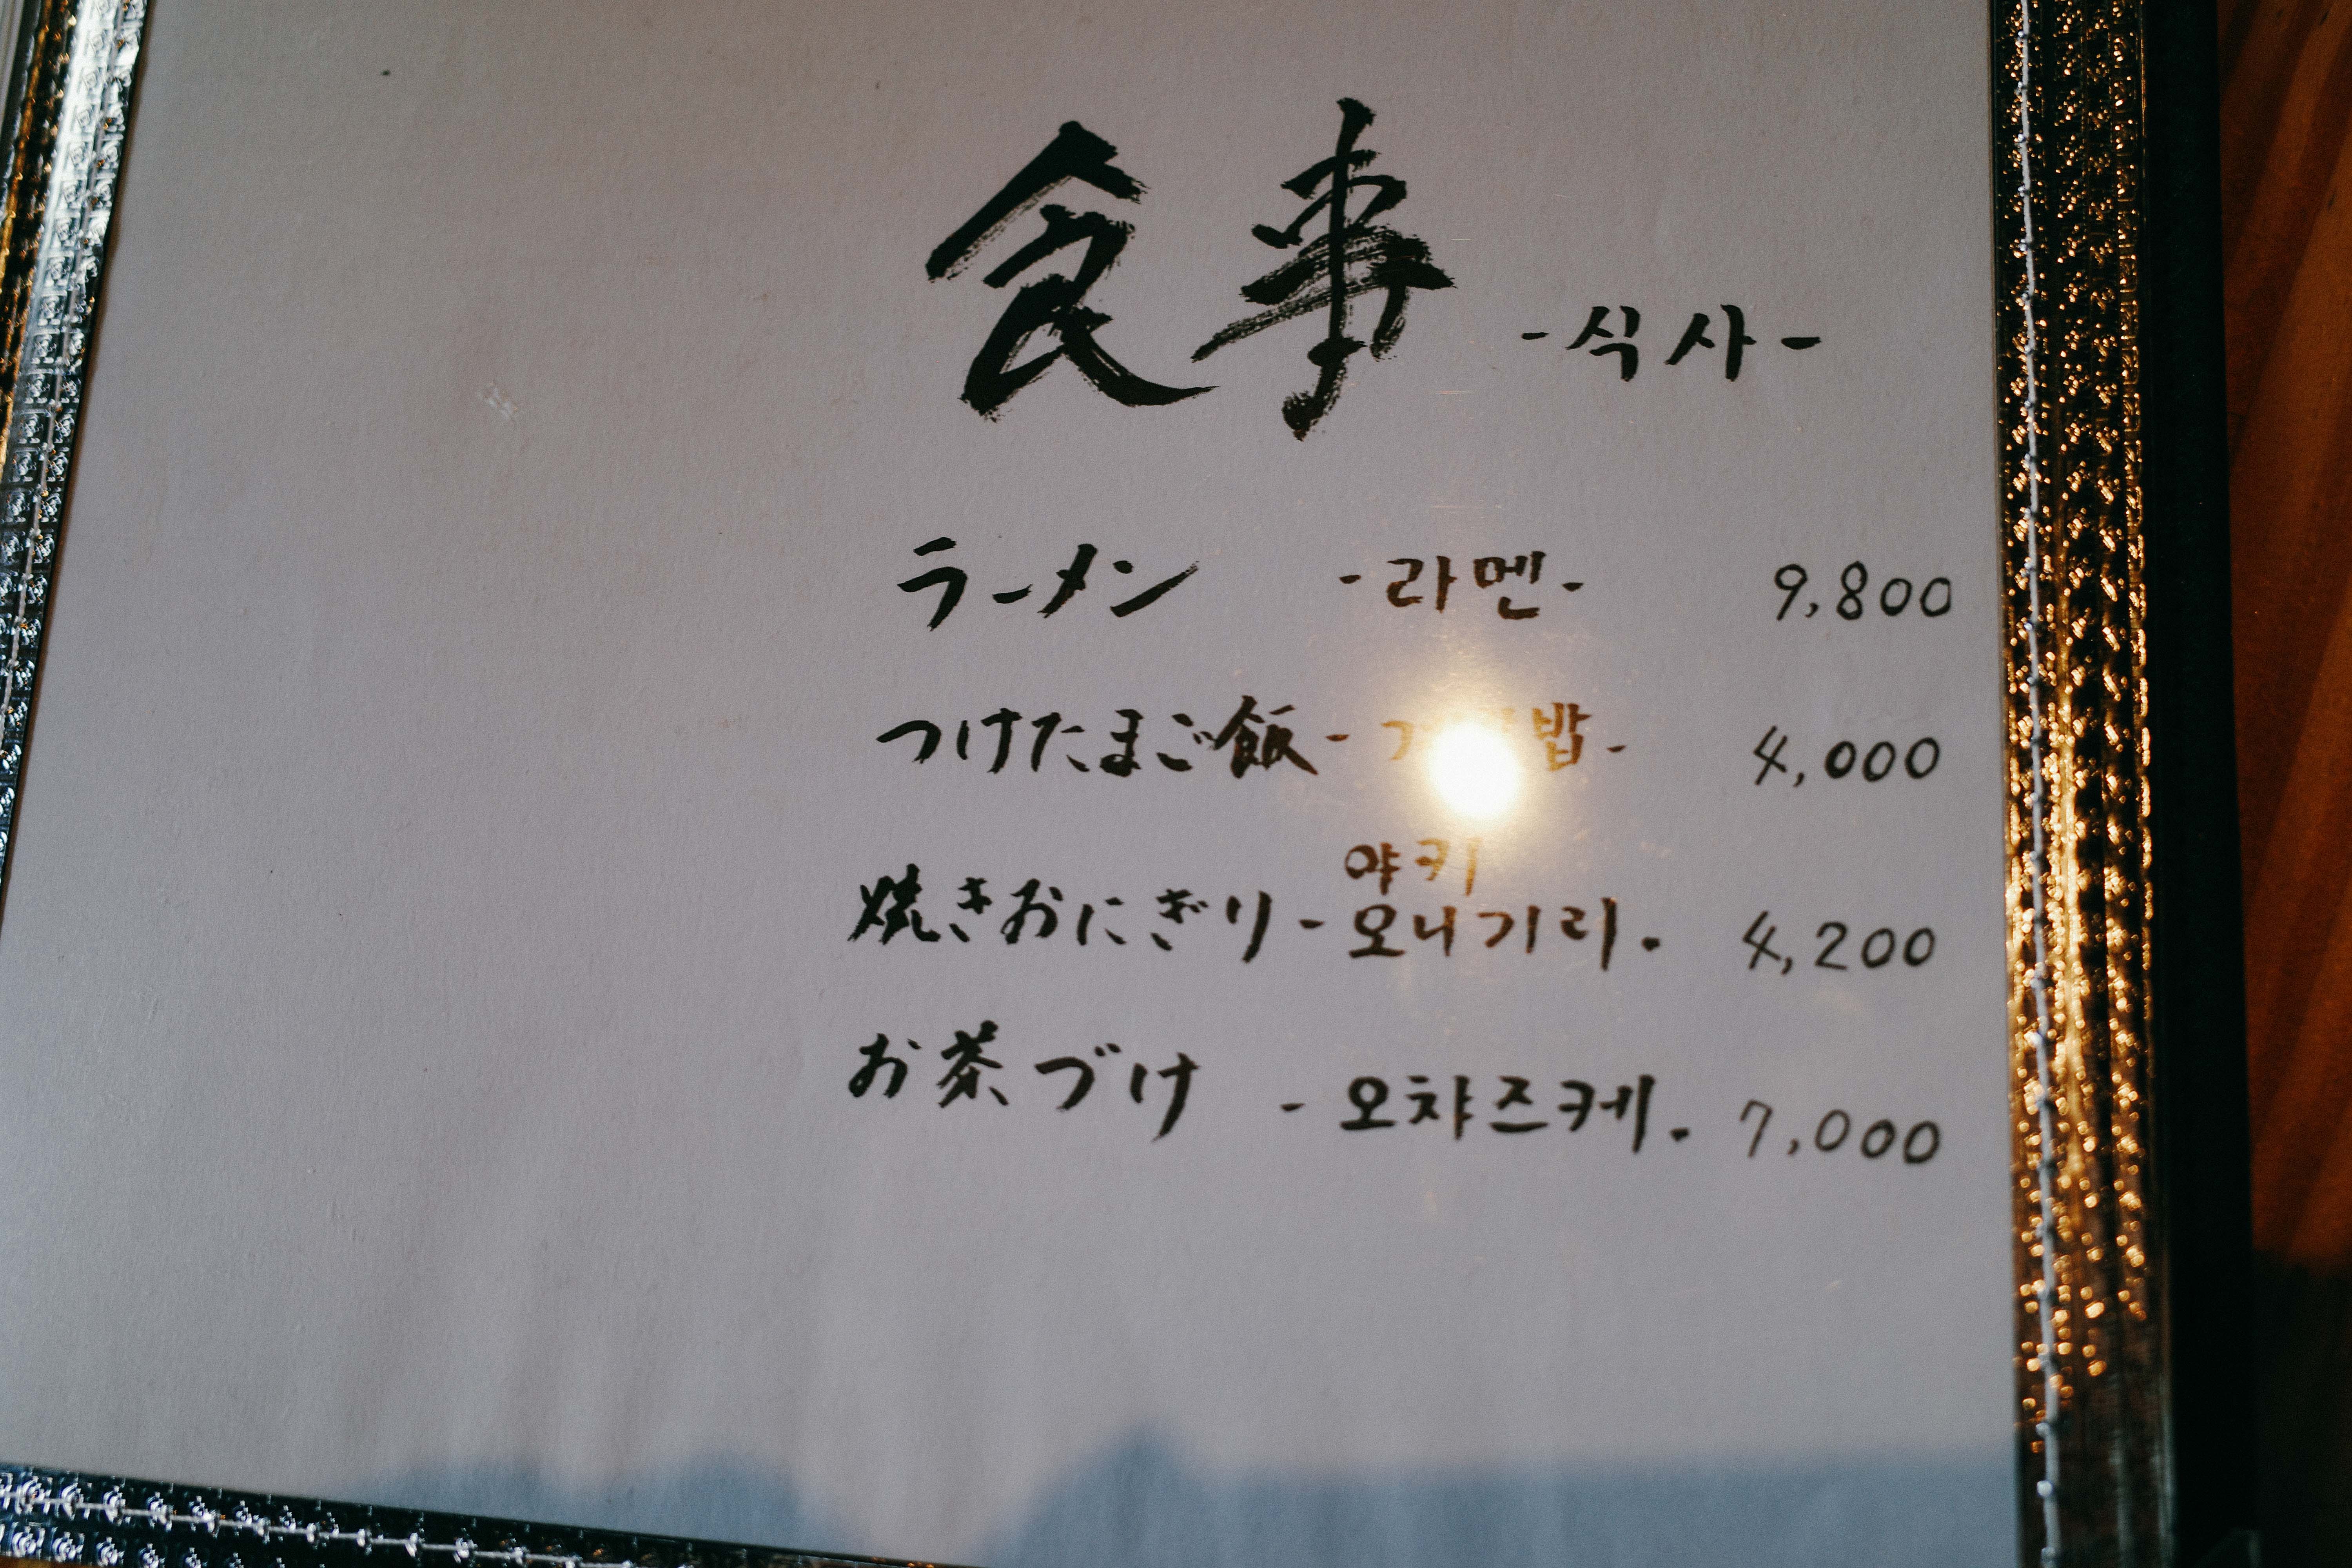 食事 -식사-
ラーメン -라멘- 9,800
つけたまご飯 - 밥- 4,000
焼きおにぎり - 야키 오니기리. 4,200
お茶づけ - 오챠즈케. 7,000